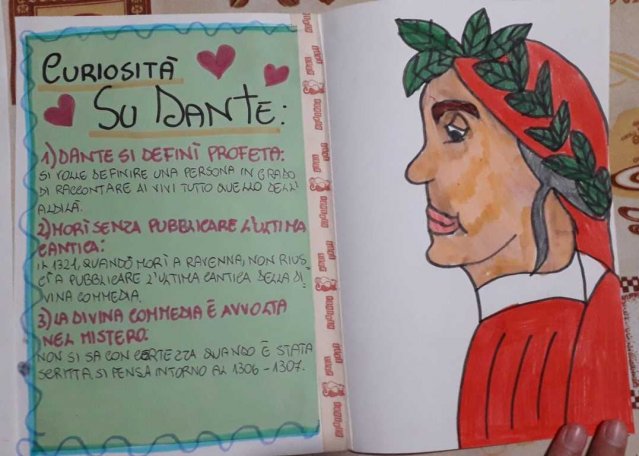 CURIOSITÀ
SU DANTE:
1) DANTE SI DEFINÌ PROFETA:
SI VOLLE DEFINIRE UNA PERSONA IN GRADO
DI RACCONTARE AI VIVI TUTTO QUELLO DELL'
ALDILÀ.
2) MORÌ SENZA PUBBLICARE L'ULTIMA
CANTICA:
IL 1321, QUANDO MORÌ A RAVENNA, NON RIUS
CÌ A PUBBLICARE L'ULTIMA CANTICA DELLA DI
VINA COMMEDIA.
3) LA DIVINA COMMEDIA È AVVOLTA
NEL MISTERO:
NON SI SA CON CERTEZZA QUANDO È STATA
SCRITTA, SI PENSA INTORNO AL 1306-1307.